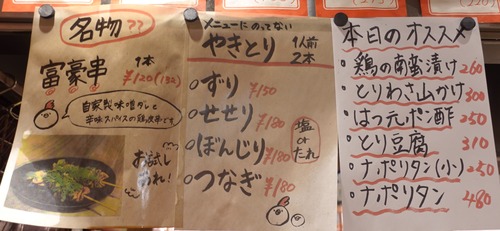 名物??
富豪串
1本
¥120(132)
自家製味噌ダレと
辛味スパイスの鶏皮串です
お試し
あれ!
メニューにのってない
やきとり
1人前
2本
・ずり ¥150
・せせり ¥180
・ぼんじり ¥180
・つなぎ ¥180
塩
or
たれ
本日のオススメ
・鶏の南蛮漬け 260
・とりわさ山かけ 300
・はつ元ポン酢 250
・とり豆腐 310
・ナポリタン(小) 250
・ナポリタン 480